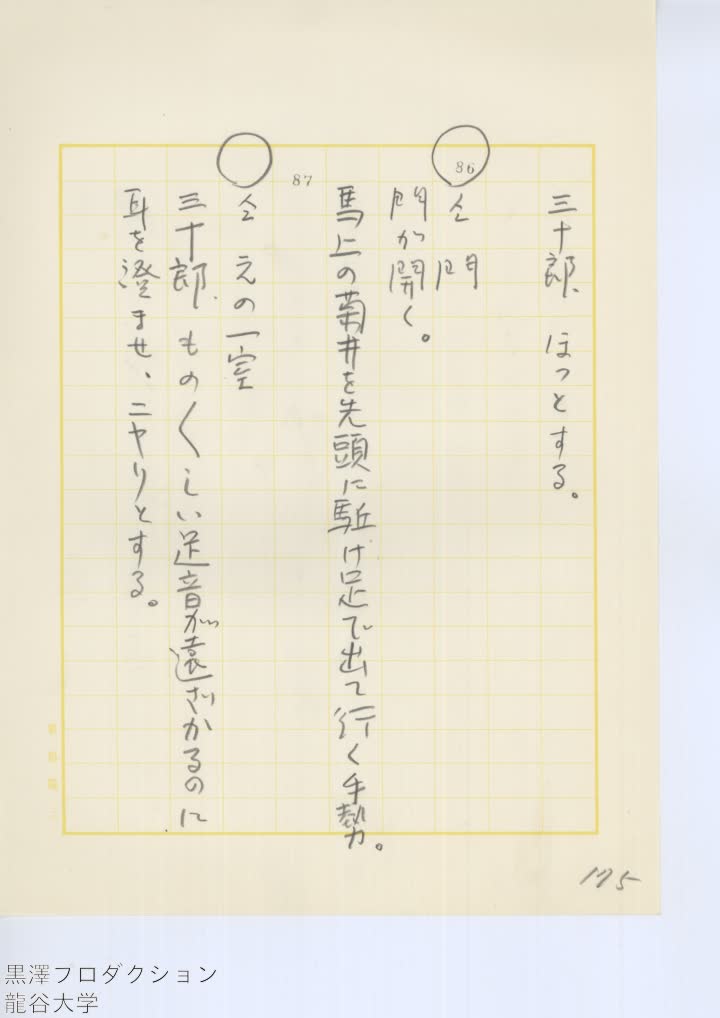 三十郎、ほっとする。
86
仝 門
門が開く。
馬上の菊井を先頭に駈け足で出て行く手勢。
87
仝 元の一室
三十郎、もの〱しい足音が遠ざかるのに
耳を澄ませ、ニヤリとする。
175
黒澤プロダクション
龍谷大学